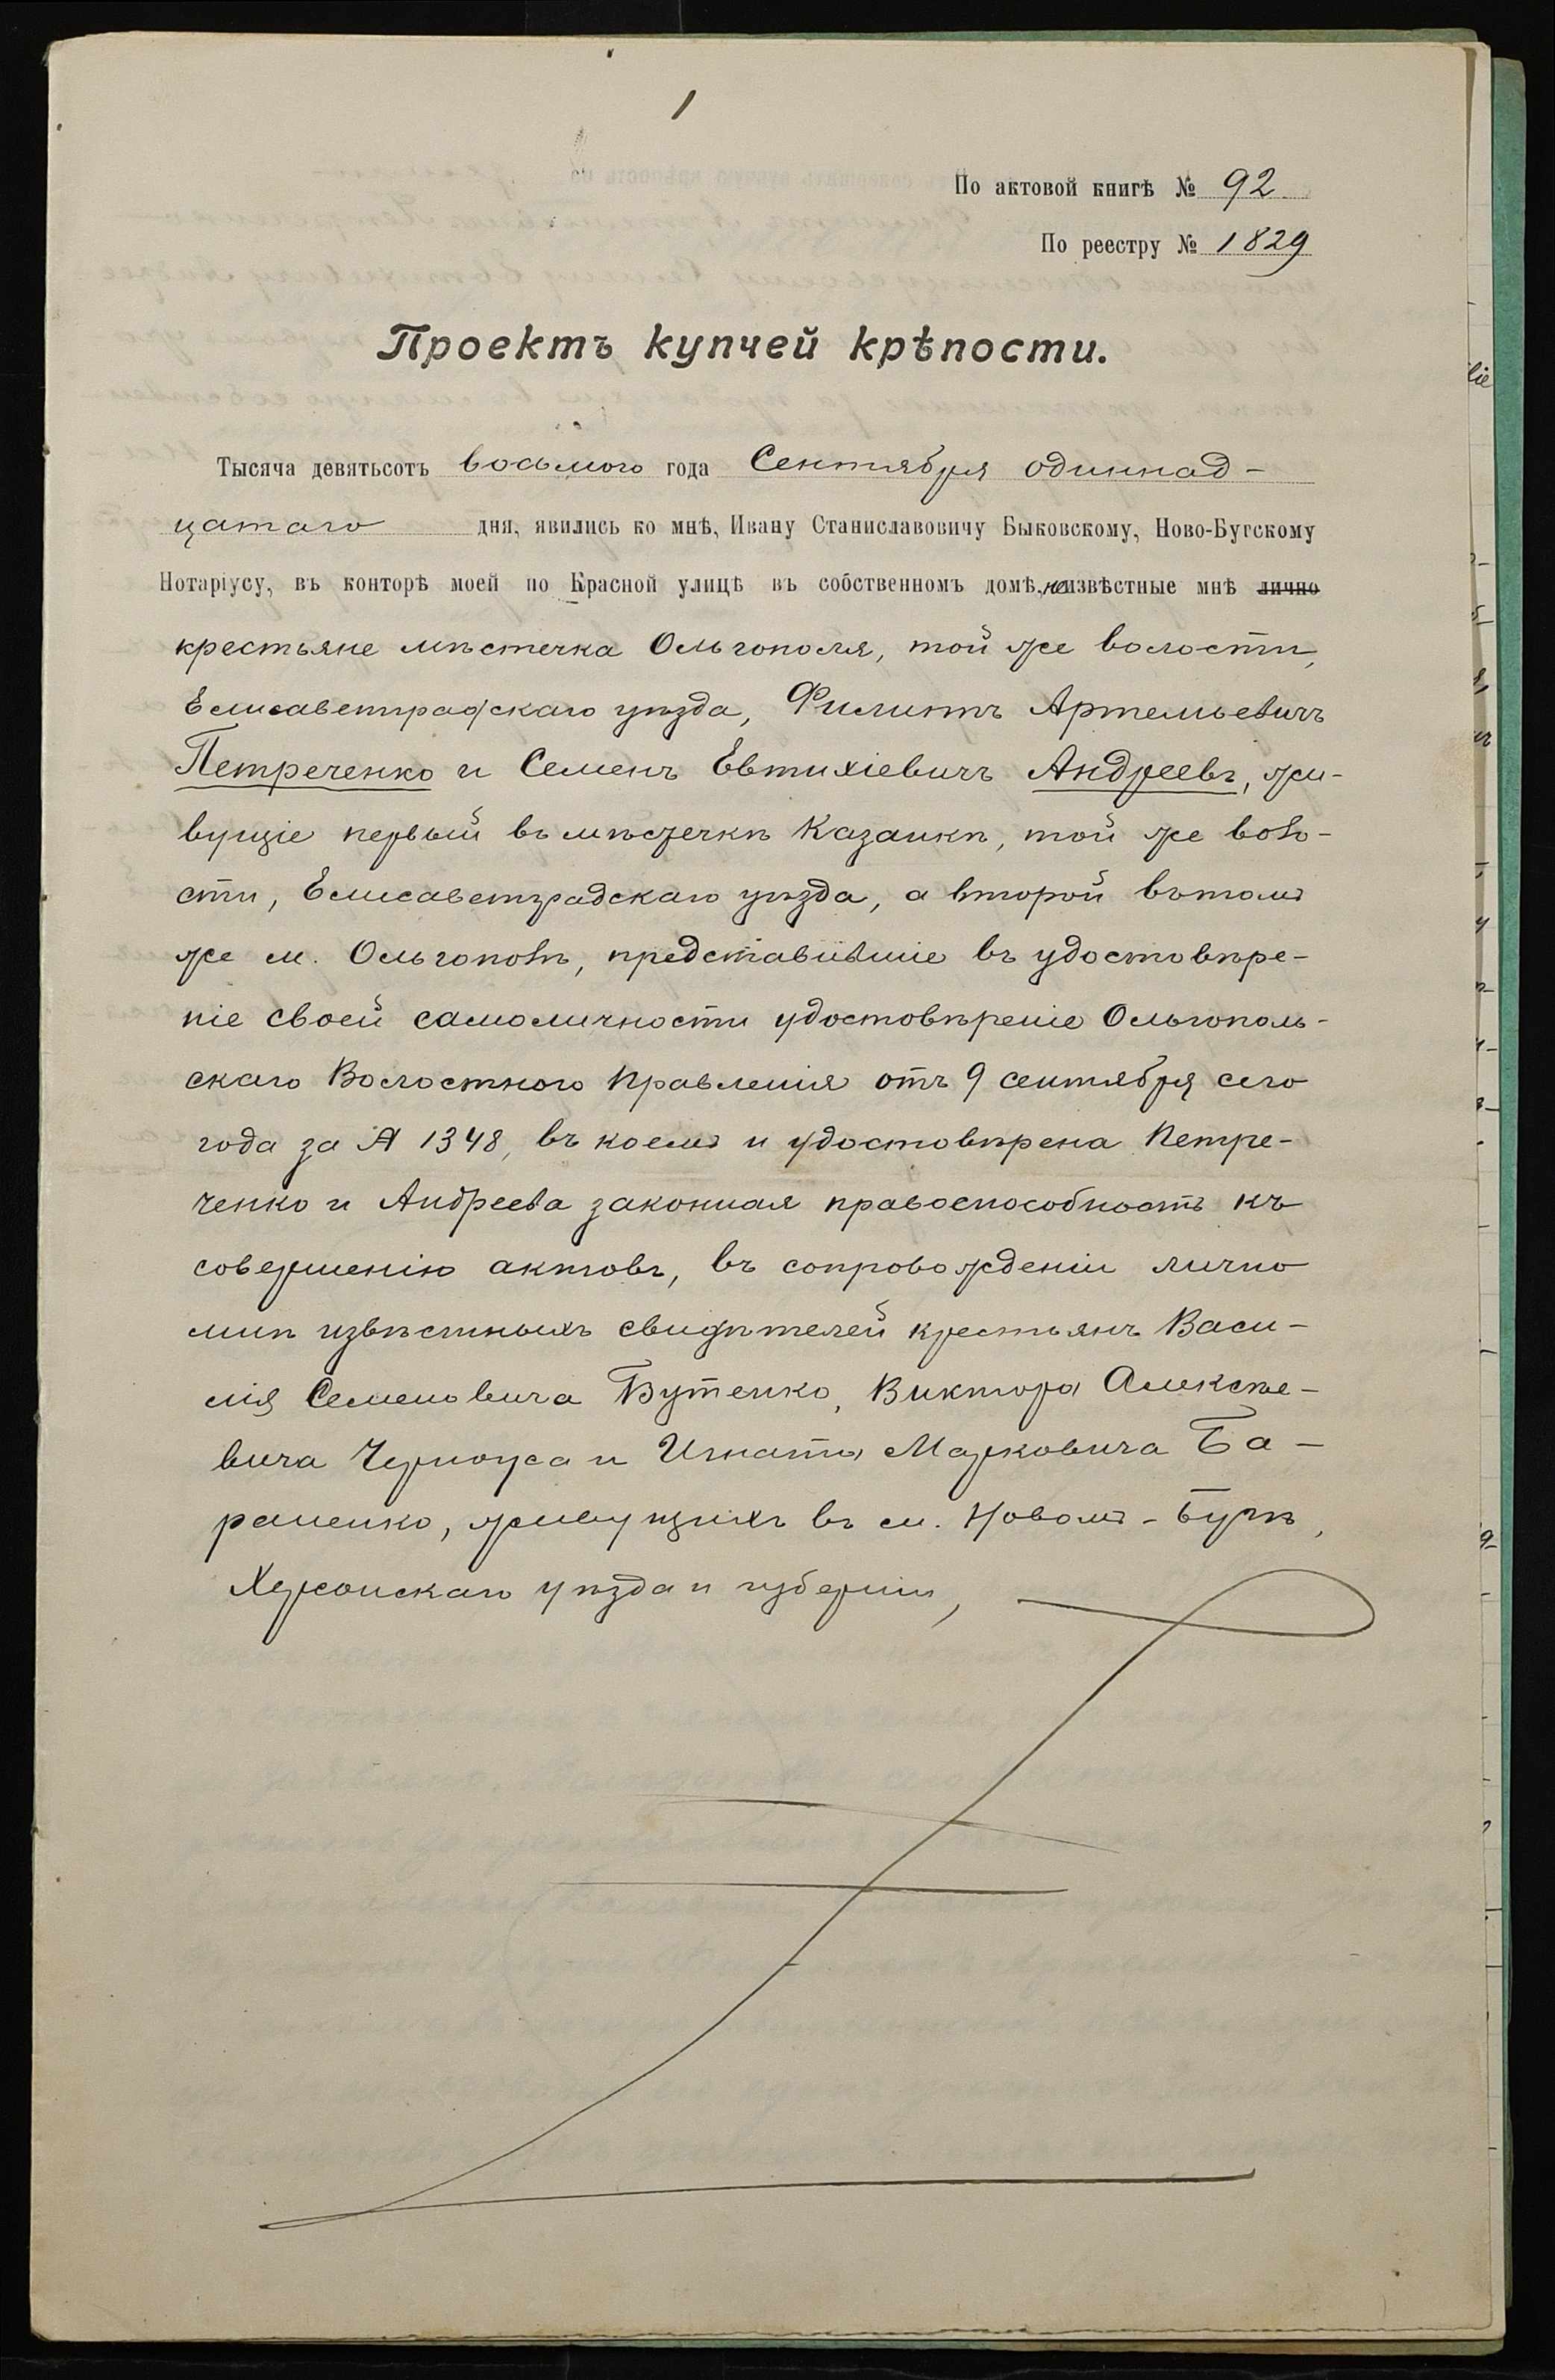 1
По актовой книгѣ № 92
По реестру № 1829
Проектъ купчей крѣпости.
Тысяча девятьсотъ восьмого года Сентября одиннад-
цатаго дня, явились ко мнѣ, Ивану Станиславовичу Быковскому, Ново-Бугскому
Нотаріусу, въ конторѣ моей по Красной улицѣ въ собственномъ домѣ, неизвѣстные мнѣ лично
крестьяне мѣстечка Ольгополя, той же волости,
Елисаветградскаго уѣзда, Филиппъ Артемьевичъ
Петреченко и Семенъ Евтихіевичъ Андреевъ, жи-
вущіе первый въ мѣстечкѣ Казанкѣ, той же воло-
сти, Елисаветградскаго уѣзда, а второй въ томъ
же м. Ольгополѣ, представившіе въ удостовѣре-
ніе своей самоличности удостовѣреніе Ольгополь-
скаго Волостного Правленія отъ 9 сентября сего
года за № 1348, въ коемъ и удостовѣрена Петре-
ченко и Андреева законная правоспособность къ
совершенію актовъ, въ сопровожденіи лично
мнѣ извѣстныхъ свидѣтелей крестьянъ Васи-
лія Семеновича Бутенко, Виктора Алексѣе-
вича Черноуса и Игната Марковича Ба-
раненко, живущихъ въ м. Новомъ-Бугѣ,
Херсонскаго уѣзда и губерніи,